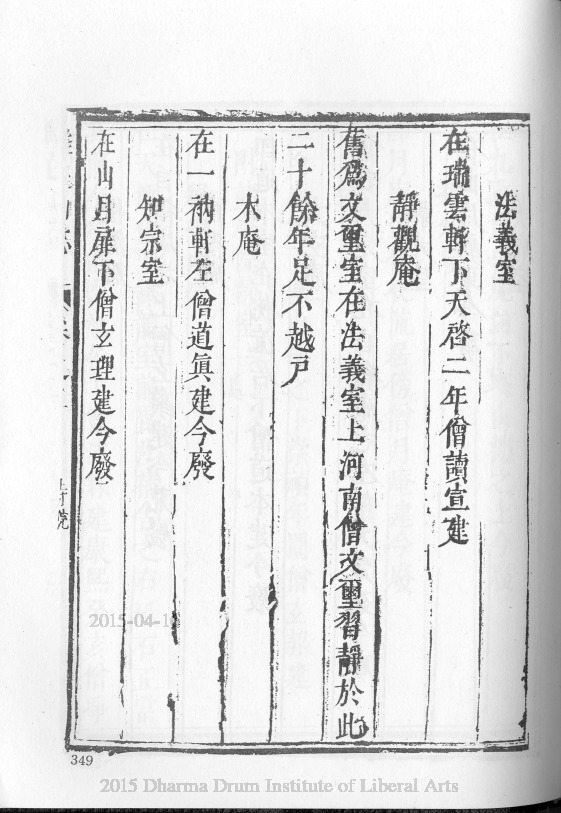 法義室
在瑞雲軒下天啓二年僧讀宣建
靜觀庵
舊爲文璽室在法義室上河南僧文璽習靜於此
二十餘年足不越戸
木庵
在一衲軒左僧道眞建今廢
知宗室
在山月扉下僧玄理建今廢
349
2015-04-1
2015 Dharma Drum Institute of Liberal Arts